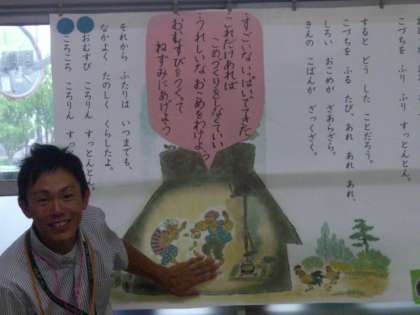 こづちを ふり ふり、
こづち ふれ ふれ、すっとんとん。
すると どう した ことだろう。
こづちを ふる たび、あれ あれ あれ、
しろい おこめが ざあらざら。
きんの こばんが ざっくざく。
すごいな いっぱいでてきた
これだけあれば
こめづくりをしなくていい
うれしいな おこめをわけよう
おむすびをつくって
ねずみにあげよう
それから ふたりは いつまでも、
なかよく たのしく くらしたよ。
おむすび ころりん すっとんとん。
ころころ ころりん すっ